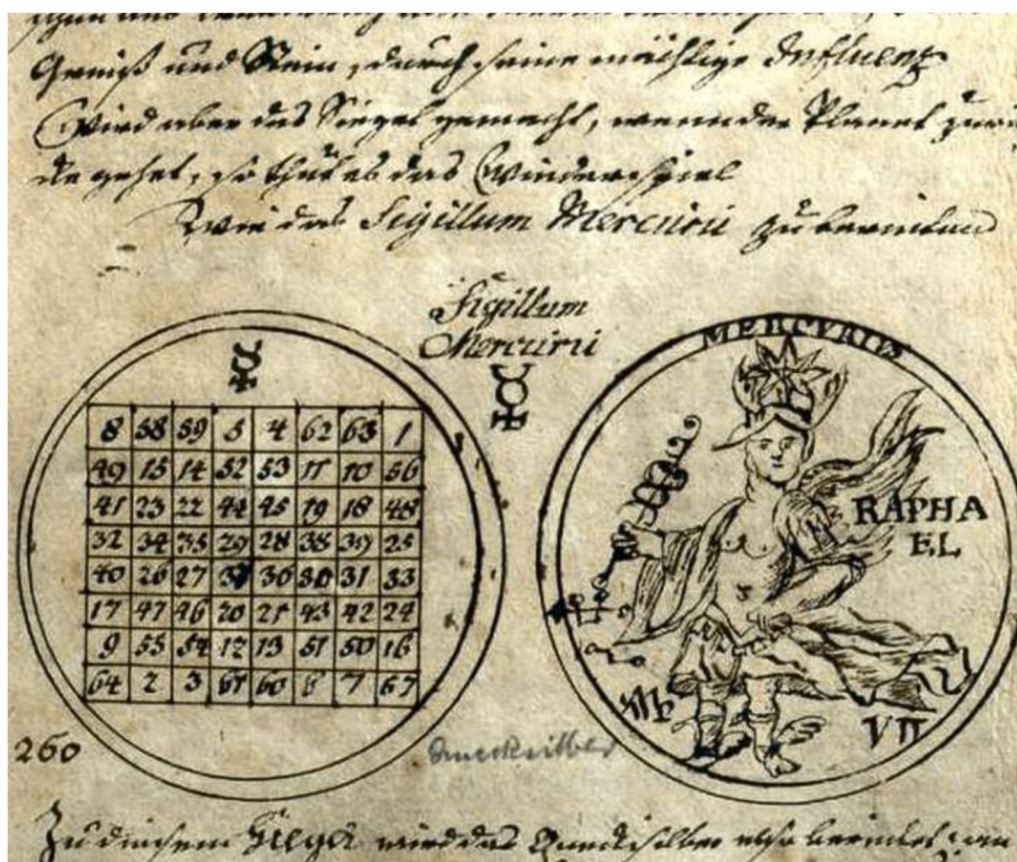 und
und durch seine mächtige Influenz
Wird aber das Siegel gemacht, wenn der Planet zurü
cke gehet, so thut es das Wiederspiel
Wie das Sigillum Mercurii zu bereiten
Sigillum
Mercurii
☿
☿
8 58 59 5 4 62 63 1
49 15 14 52 53 11 10 56
41 23 22 44 45 19 18 48
32 34 35 29 28 38 39 25
40 26 27 37 36 30 31 33
17 47 46 20 21 43 42 24
9 55 54 12 13 51 50 16
64 2 3 61 60 6 7 57
MERCURIUS
RAPHA
EL
♍
VII
260
Quecksilber
Zu diesem wird das Quecksilber also bereitet: man